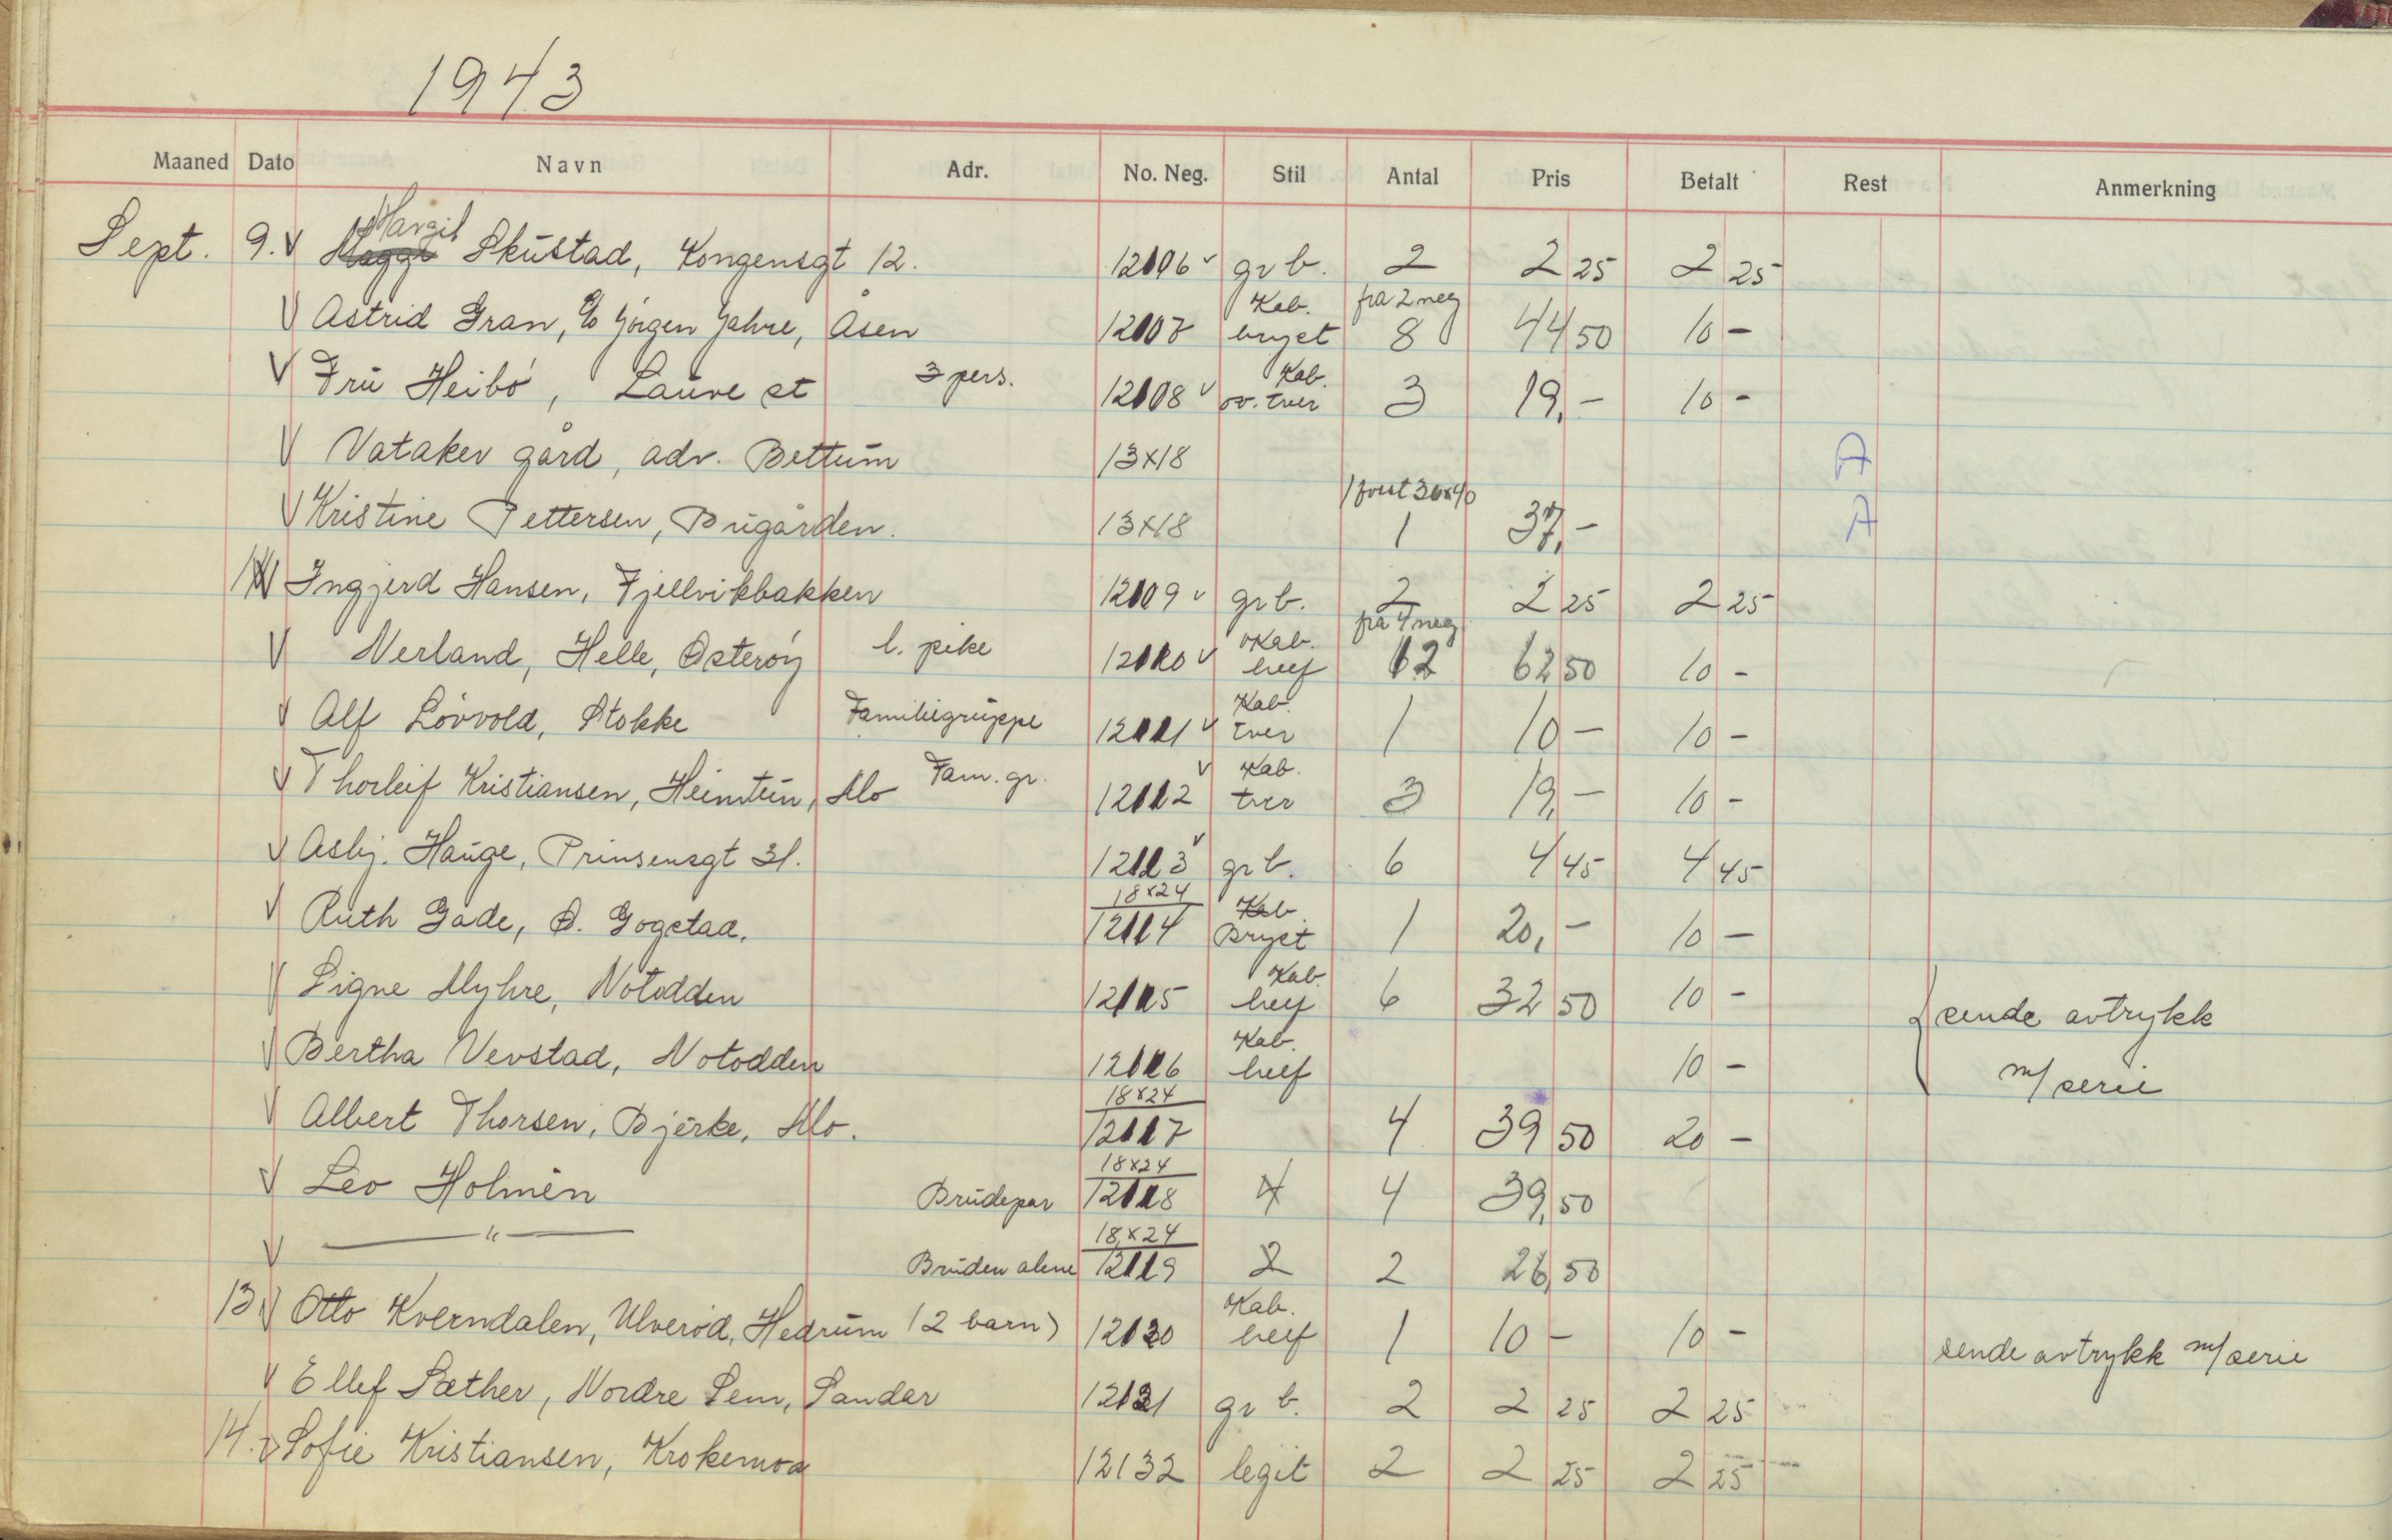 1943
Maaned Dato Navn Adr. No. Neg. Stil Antal Pris Betalt Rest Anmerkning
Margit
Sept. 9. V Skustad, Kongensgt 12. 12106 v gr b. 2 2 25 2 25
Kab. fra 2 neg
V Astrid Gran, c/o Jörgen Jahre, Åsen 12107 bryst 8 44 50 10 -
Kab.
V Fru Heibö, Lauve st 3 pers. 12108 v ov. tver 3 19,- 10 -
V Vataker gård, adr. Bettum 13x18 A
1 forst 30x40
V Kristine Pettersen, Bugården. 13x18 1 37,- A
V Ingjerd Hansen, Fjellvikbakken 12109 v gr b. 2 2 25 2 25
fra 4 neg
Kab.
V Nerland, Helle, Østeröy l. pike 12110 v helf 12 62 50 10 -
Kab.
V Alf Lövvold, Stokke Familiegruppe 12111 v tver 1 10 - 10 -
v Kab.
V Thorleif Kristiansen, Heimtun, Mo Fam. gr. 12112 tver 3 19,- 10 -
V Asbj. Hauge, Prinsensgt 31. 12113 v gr b. 6 4 45 4 45
18x24 Kab.
V Ruth Gade, Ø. Gogstad. 12114 Bryst 1 20,- 10 -
Kab.
V Signe Myhre, Notodden 12115 helf 6 32 50 10 - { sende avtrykk
Kab.
V Bertha Vevstad, Notodden 12116 helf 10 - m/serie
18x24
V Albert Thorsen, Bjerke, Mo. 12117 4 39 50 20 -
18x24
V Leo Holmen Brudepar 12118 4 4 39,50
18x24
V —"— Bruden alene 12119 2 2 26,50
Kab.
13 V Otto Kverndalen, Ulveröd, Hedrum (2 barn) 12130 helf 1 10 - 10 - sende avtrykk m/serie
V Ellef Sæther, Nordre Sem, Sandar 12131 gr b. 2 2 25 2 25
14. V Sofie Kristiansen, Krokemoa 12132 legit 2 2 25 2 25